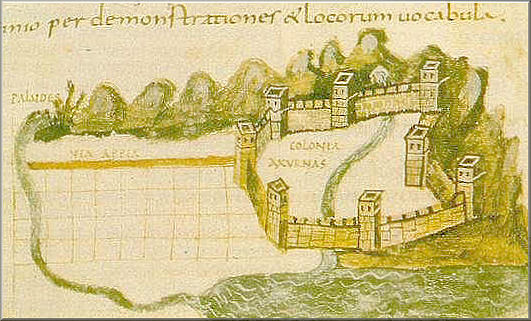 per demonstrationes & locorum uocabula.
PALUDES
VIA APPIA
COLONIA
AXVRNAS